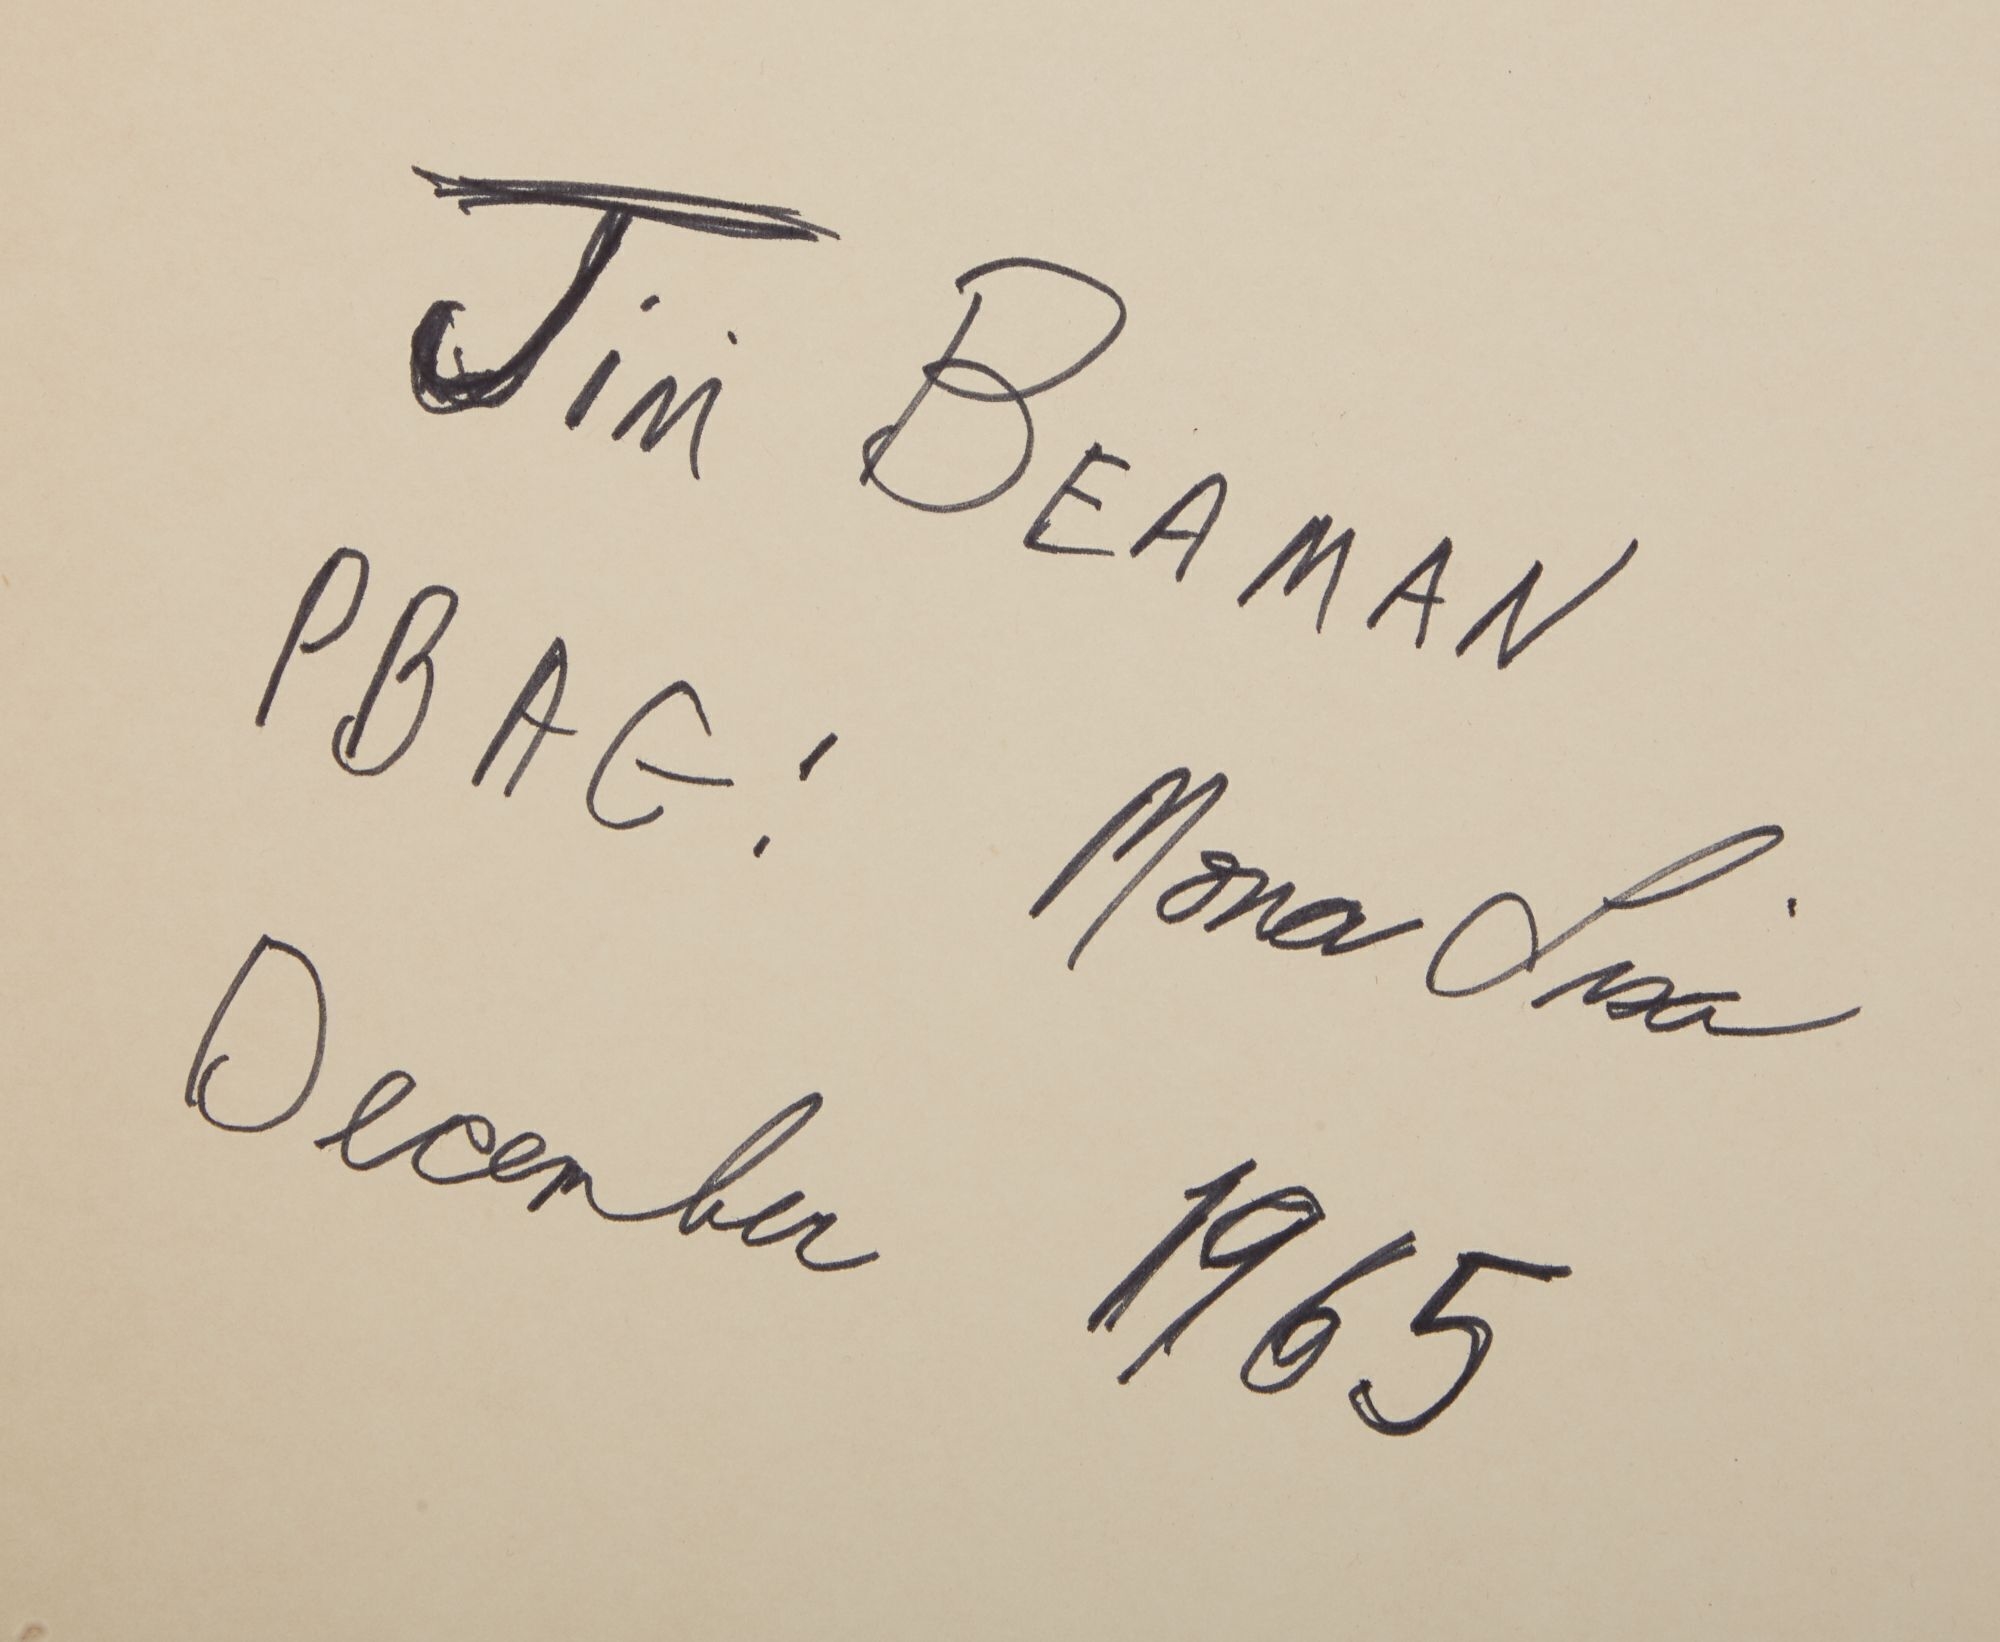 Jim BEAMAN
PBAG: Mona Lisa
December 1965